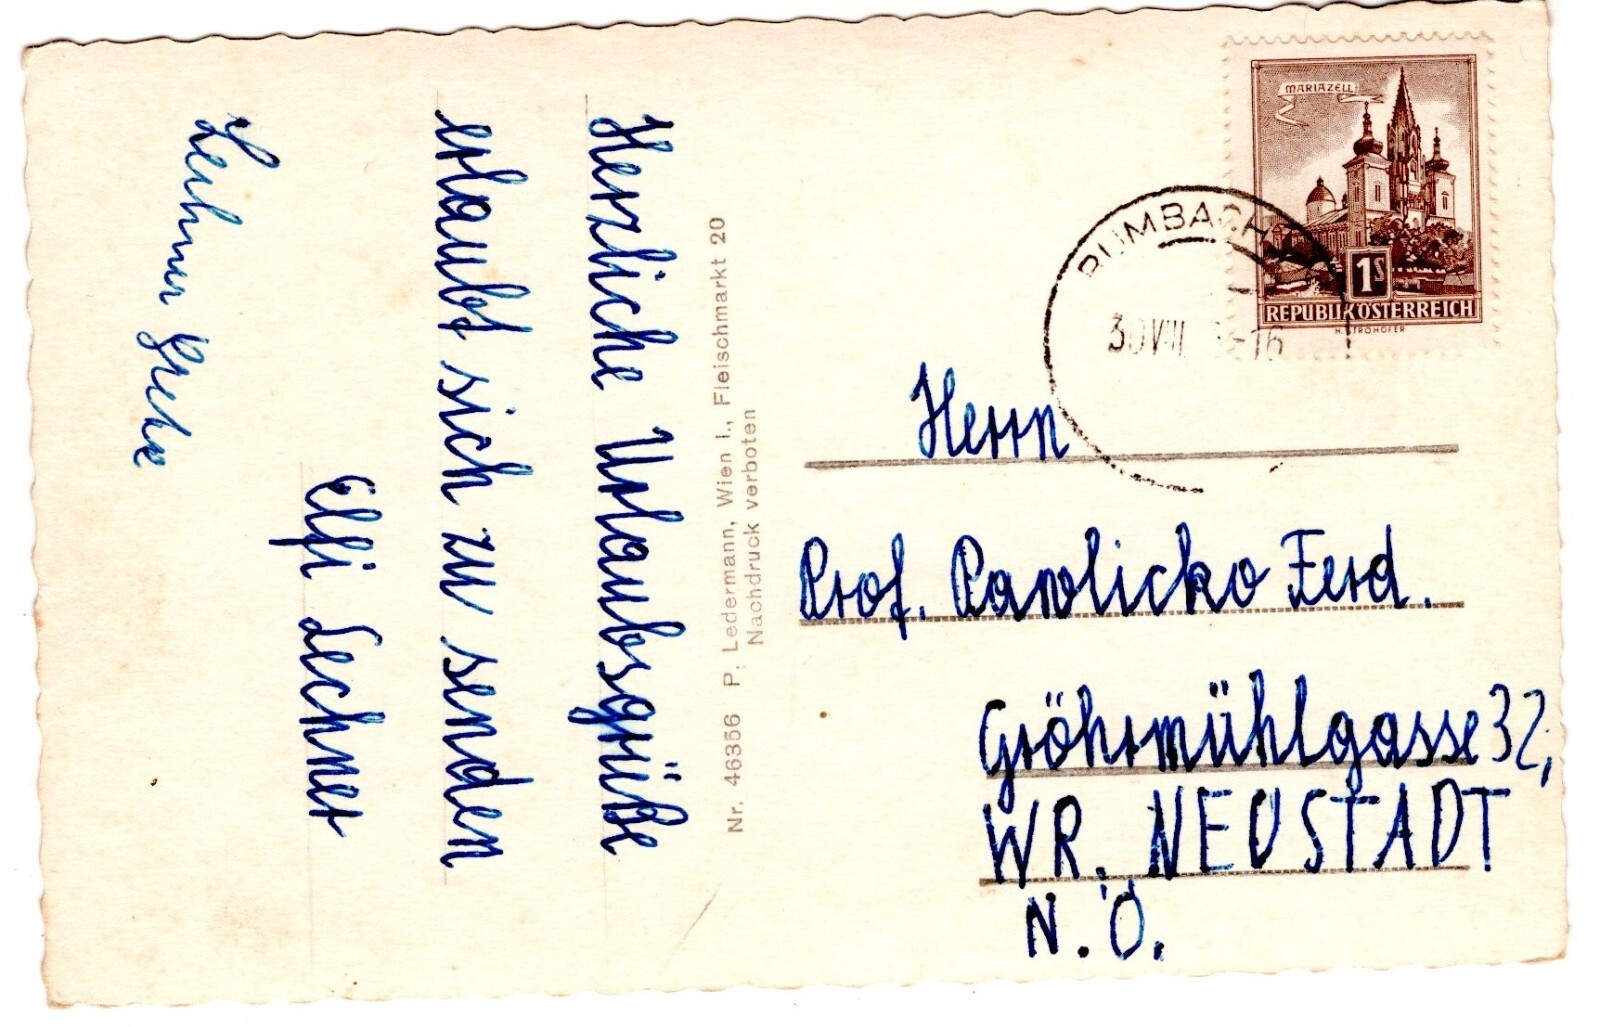 Herzliche Urlaubsgrüße
erlaubt sich zu senden
Elfi Lechner
Lechner Grete
Nr. 46356 P. Ledermann, Wien I., Fleischmarkt 20
Nachdruck verboten
MARIAZELL
1S
REPUBLIK ÖSTERREICH
H. STROHOFER
30 VIII 16
Herrn
Prof. Pawlicko Ferd.
Gröhrmühlgasse 32,
WR. NEUSTADT
N.Ö.